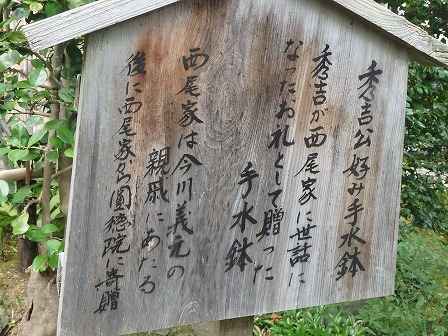 秀吉公好み手水鉢
秀吉が西尾家に世話に
なったお礼として贈った
手水鉢
西尾家は今川義元の
親戚にあたる
後に西尾家名圓徳院に寄贈